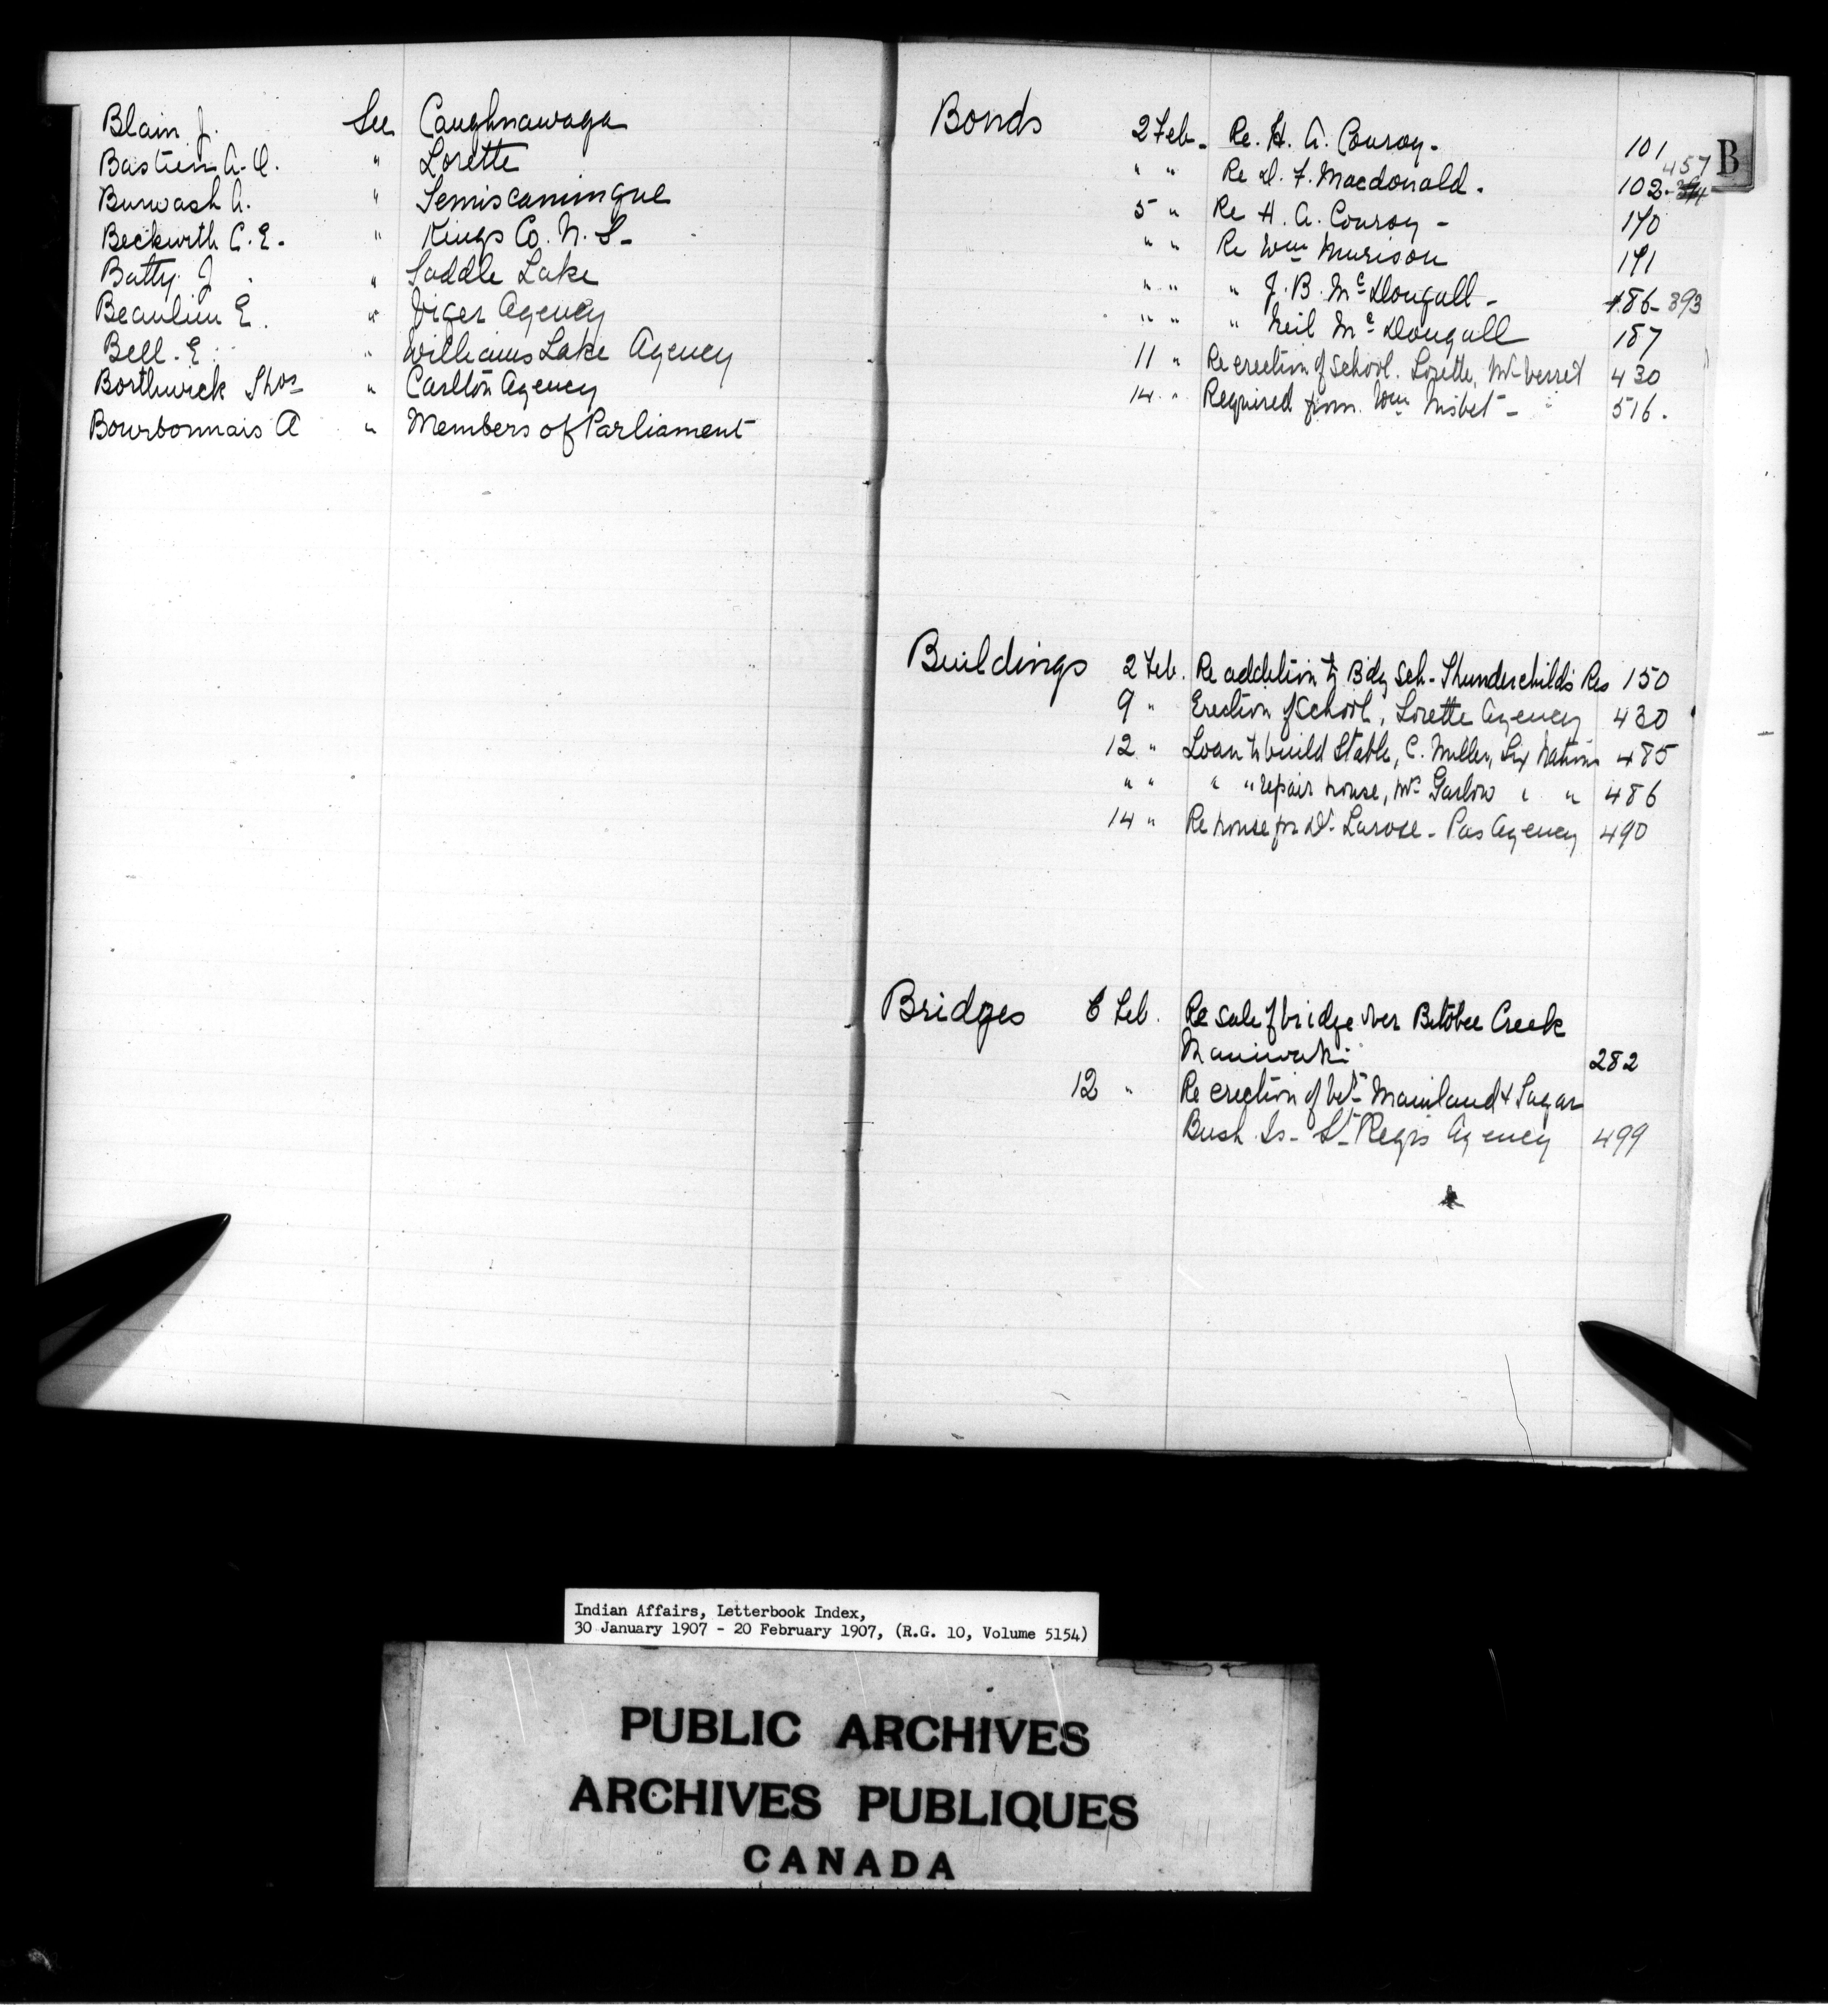 Blain J. See Caughnawaga
Bastien A. O. " Lorette
Burwash A. " Temiscamingue
Beckwith C. E. " Kings Co. N. S.
Batty J. " Saddle Lake
Beaulieu E. " Viger Agency
Bell. E. " Williams Lake Agency
Borthwick Thos " Carlton Agency
Bourbonnais A " Members of Parliament
B
Bonds 2 Feb. Re. H. A. Conroy - 101
" " Re D. F. Macdonald. 102- 457
5 " Re H. A. Conroy - 170
" " Re Wm Murison 171
" " " J. B. McDougall - 186- 393
" " " Neil McDougall 187
11 " Re erection of School. Lorette, Mr Verret 430
14 " Required from Wm Nisbet - 516.
Buildings 2 Feb. Re addition to Bdg Sch - Thunderchilds Res 150
9 " Erection of School, Lorette Agency 430
12 " Loan to build Stable, C. Miller, Six Nations 485
" " " " repair house, Mrs Garlow " " 486
14 " Re house for Dr. Larose - Pas Agency 490
Bridges 6 Feb. Re sale of bridge over Bitobee Creek
Maniwaki 282
12 " Re erection of bet. Mainland & Sugar
Bush Is - St Regis Agency 499
Indian Affairs, Letterbook Index,
30 January 1907 - 20 February 1907, (R.G. 10, Volume 5154)
PUBLIC ARCHIVES
ARCHIVES PUBLIQUES
CANADA